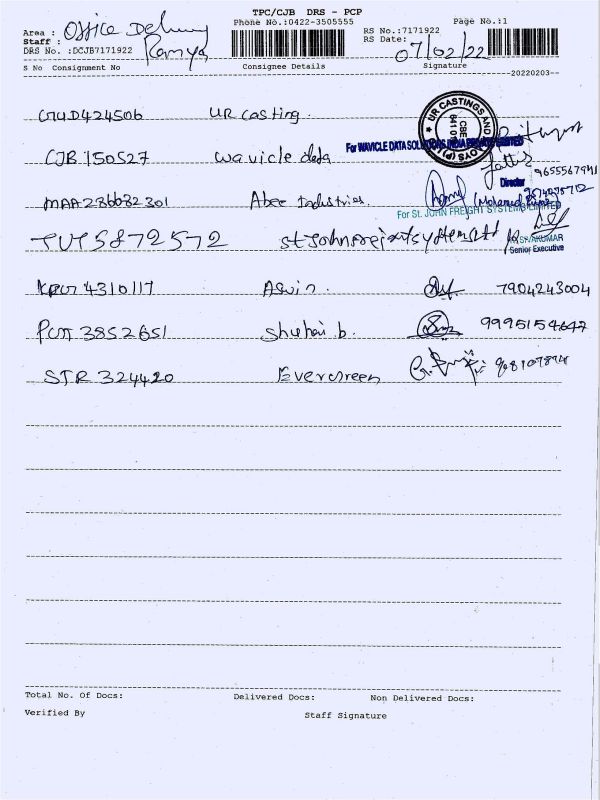 TPC/CJB DRS - PCP
Area : Office Delivery Phone No.:0422-3505555 RS No.:7171922 Page No.:1
Staff : Ramya RS Date: 07/02/22
DRS No. :DCJB7171922
S No Consignment No Consignee Details Signature
--20220203--
UR casting.
★ UR CASTINGS AND
CBE
641 0
CJB 150527 wavicle data For WAVICLE DATA SOLUTIONS INDIA PRIVATE LIMITED
Director 9655567941
MAA 286682301 Abee Industries.
For St. JOHN FREIGHT SYSTEMS LIMITED
TUT 5872572
SIVAKUMAR
Senior Executive
4310117 Aswin. 7904243004
PCM 3852651 Shuhai b. 9995154647
STR 324420 Evergreen
Total No. Of Docs: Delivered Docs: Non Delivered Docs:
Verified By Staff Signature